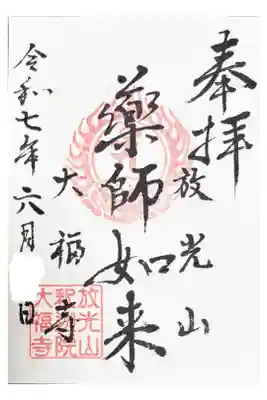 奉拝
放光山
薬師如来
大福寺
令和七年六月 日
放光山
大福寺